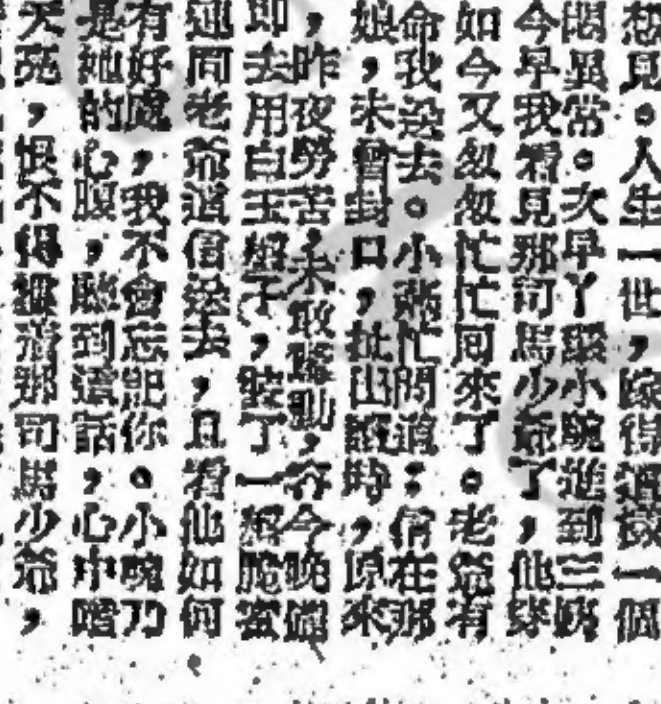 想見。人生一世，嫁得這樣一個
悶異常。次早丫鬟小婉進到三姨
今早我看見那司馬少爺了，他穿
如今又匆匆忙忙回來了。老爺有
命我送去。小婉忙問道：信在那
娘，未曾封口，扯出認時，原來
，昨夜勞苦，未敢驚動，容今晚
即去用白玉瓶子，裝了一瓶
連同老爺這信送去，且看他如何
有好處，我不會忘記你。小婉乃
是她的心腹，聽到這話，心中暗
天亮，恨不得 那司馬少爺，